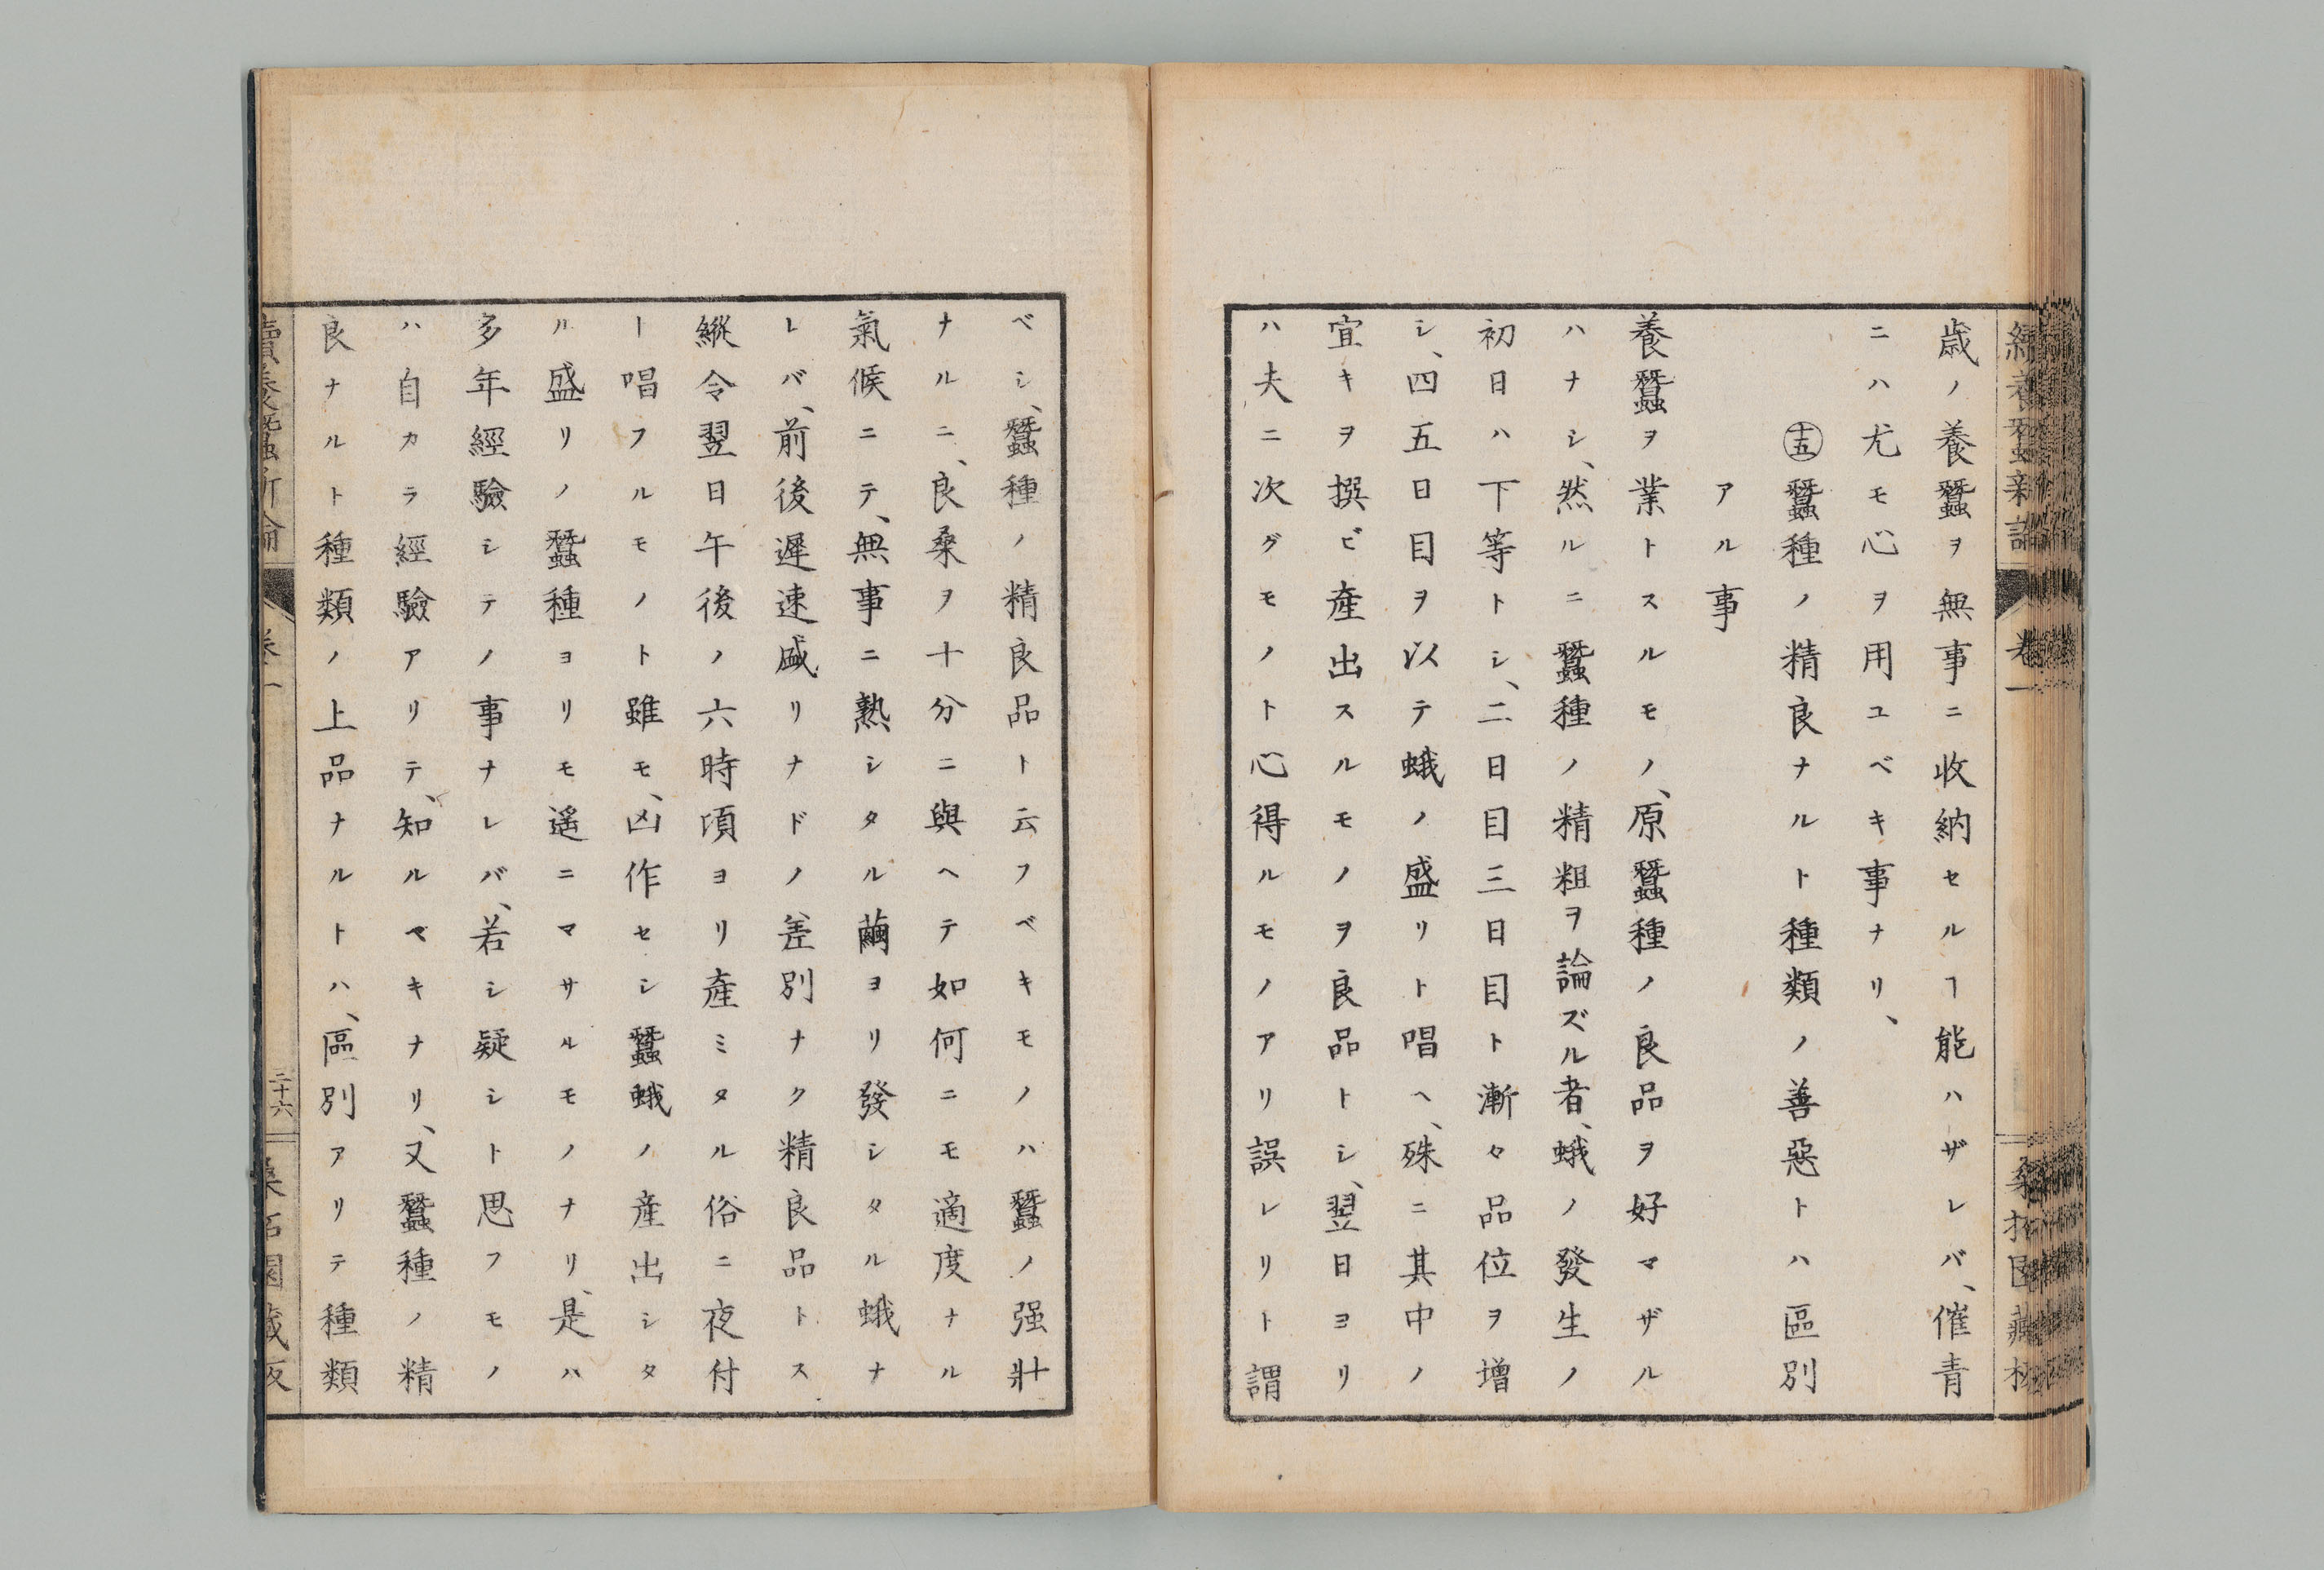 歳ノ養蠶ヲ無事ニ收納セルヿ能ハザレバ、催青
ニハ尤モ心ヲ用ユベキ事ナリ、
㊉五蠶種ノ精良ナルト種類ノ善惡トハ區別
アル事
養蠶ヲ業トスルモノ、原蠶種ノ良品ヲ好マザル
ハナシ、然ルニ蠶種ノ精粗ヲ論ズル者、蛾ノ發生ノ
初日ハ下等トシ、二日目三日目ト漸々品位ヲ增
シ、四五日目ヲ以テ蛾ノ盛リト唱ヘ、殊ニ其中ノ
宜キヲ撰ビ産出スルモノヲ良品トシ、翌日ヨリ
ハ夫ニ次グモノト心得ルモノアリ誤レリト謂
續養蠶新論 卷一
ベシ、蠶種ノ精良品ト云フベキモノハ蠶ノ强壯
ナルニ、良桑ヲ十分ニ與ヘテ如何ニモ適度ナル
氣候ニテ、無事ニ熟シタル繭ヨリ發シタル蛾ナ
レバ、前後遲速盛リナドノ差別ナク精良品トス
縱令翌日午後ノ六時頃ヨリ産ミタル俗ニ夜付
ート唱フルモノト雖モ、凶作セシ蠶蛾ノ産出シタ
ル盛リノ蠶種ヨリモ遥ニマサルモノナリ、是ハ
多年經驗シテノ事ナレバ、若シ疑シト思フモノ
ハ自カラ經驗アリテ、知ルベキナリ、又蠶種ノ精
良ナルト種類ノ上品ナルトハ、區別アリテ種類
續養蠶新論 卷一 二十六